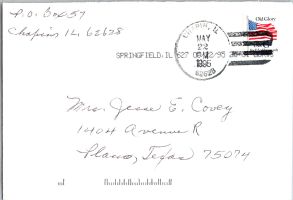 P.O. Box 57
Chapin, IL, 62628
Old Glory
CHAPIN, IL
MAY
22
1995
62628
SPRINGFIELD, IL 627
Mrs. Jesse E. Covey
1404 Avenue R
Plano, Texas 75074